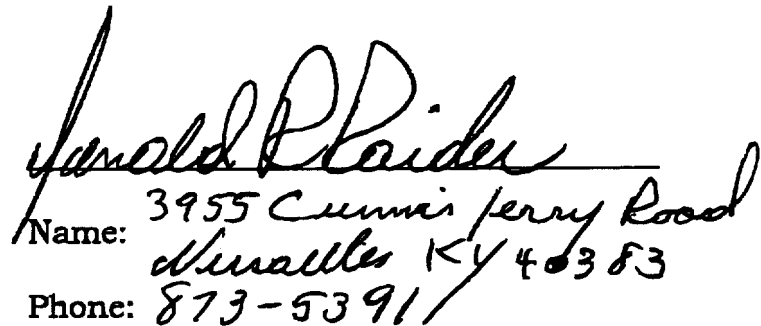 Donald R Raider
Name: 3955 Cummins Ferry Road
Versailles KY 40383
Phone: 873-5391